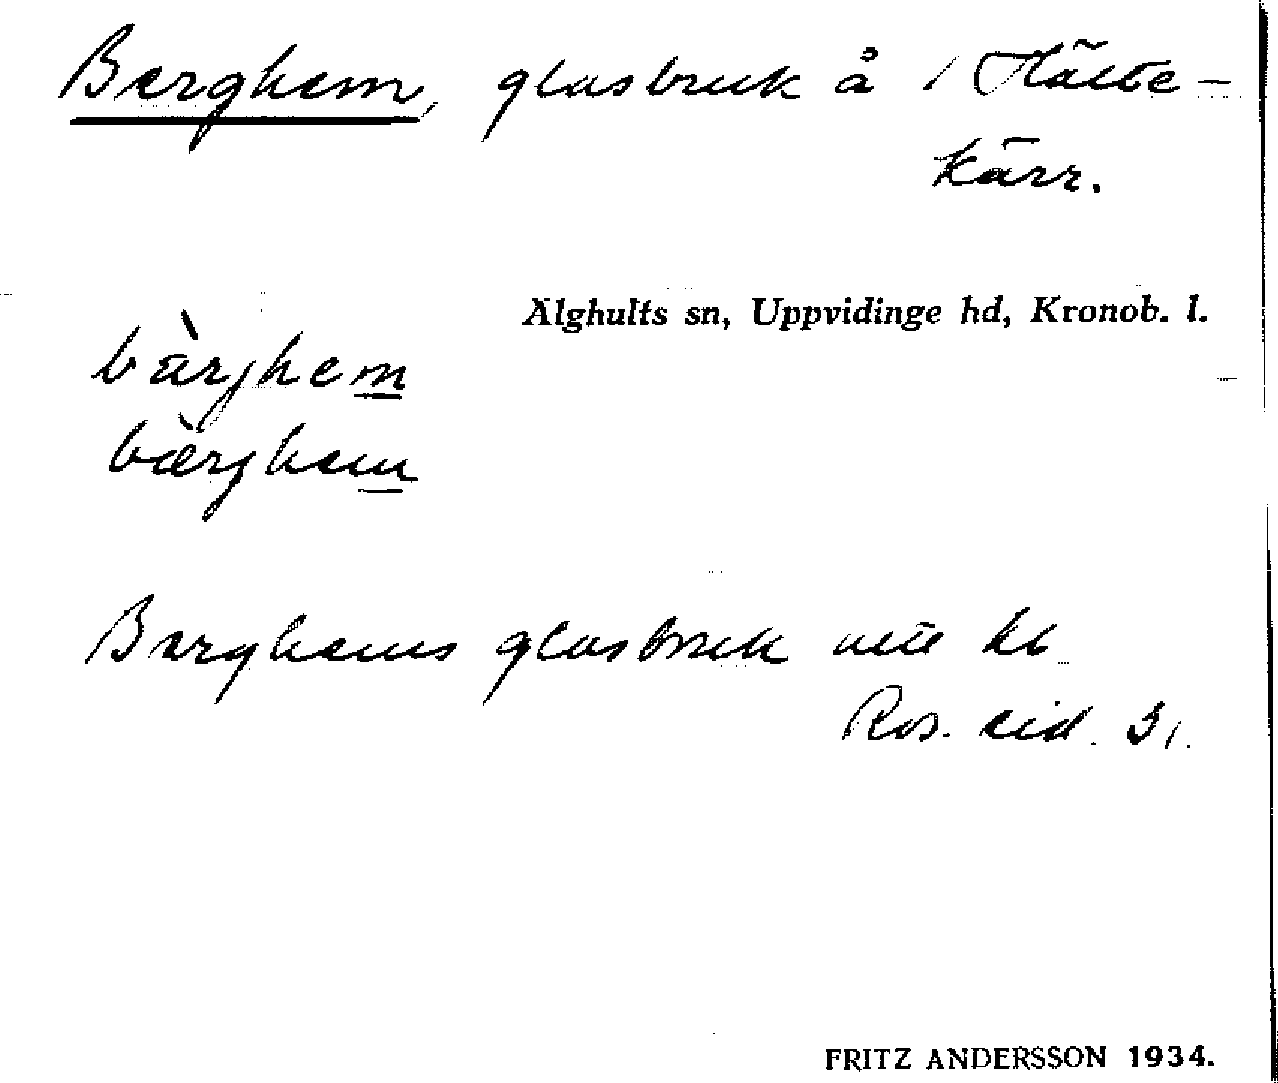 Berghem, glasbruk å 1 Hälte-
kärr.
Älghults sn, Uppvidinge hd, Kronob. l.
bàrjhem
bærjhem
Berghems glasbruk
Ros. sid. 31.
FRITZ ANDERSSON 1934.